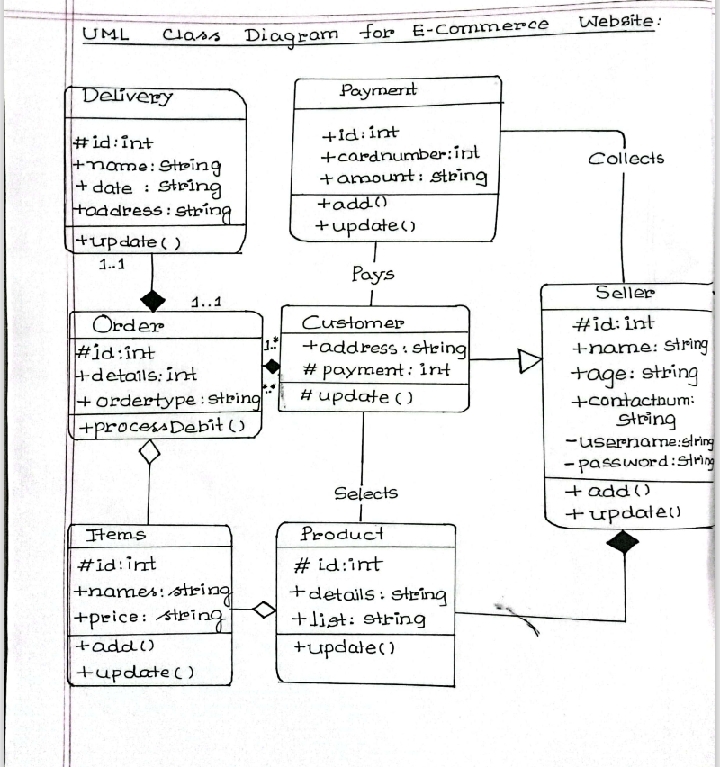 UML Class Diagram for E-Commerce Website:
Delivery
#id:int
+name:String
+date : String
+address:string
+update()
1..1
Payment
+id:int
+cardnumber:int
+amount: string
+add()
+update()
Collects
Pays
1..1
Order
#id:int
+details:int
+ordertype:string
+processDebit()
1..*
*..*
Customer
+address:string
# payment: int
# update()
Seller
#id:int
+name:string
+age:string
+contactnum:
string
-username:string
-password:string
+add()
+update()
Selects
Items
#id:int
+names:string
+price: string
+add()
+update()
Product
# id:int
+details:string
+list: string
+update()